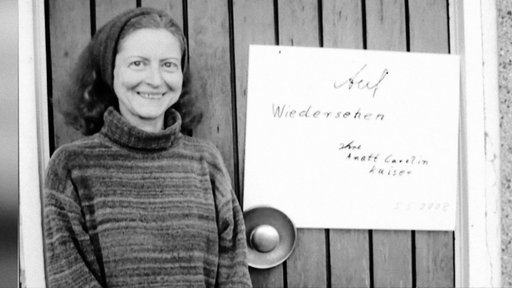 Auf
Wiedersehen
Ihre
Anatt Carolin
Kaiser
5.5.2008